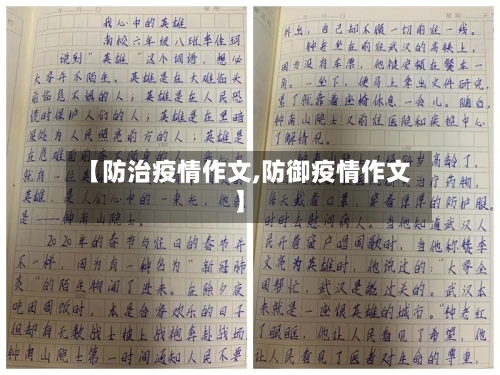 我心中的英雄
南校六年级八班李佳珂
说到"英雄"这个词语,想必
大家并不陌生。英雄是在大难临头
前临危不惧的人;英雄是在人民恐
慌时保护人们的人;英雄是在黑暗
深处为人民照亮前方的人;英雄是
在危难
就自一位
英雄,是人们心中的一束光,他
是——钟南山院士。
2020年的春节与往日的春节并
不一样,因为有一种名为"新冠肺
炎"的陌生物闯了进来。在除夕夜
吃团圆饭时,本是合家欢乐的日子
但却有无数战士披上战袍奔赴战场
钟南山院士第一时间通知人民不要
外出,自己却不顾一切前往一线。
钟老坐在前往武汉的高铁上,
因为没有车票,他被安顿在餐车一
角。一坐下,便马上拿出文件研究,
累了就靠着座椅休息一会儿。随后,
钟南山院士又前往医院和疾控中心
了解情况。
岁高龄了,
治疗药物,
每天戴着口罩,穿着厚厚的防护服,
时时去慰问病人。当他知道武汉人
民开着窗户唱国歌时,当他称赞李
文亮为英雄时,他说过的:"大家全
国帮忙,武汉是能过关的。武汉本
来就是一座很英雄的城市。"钟老红
了眼眶,他让人民看见了希望,他
让人民看见了医者对生命的尊重,
【防治疫情作文,防御疫情作文
】